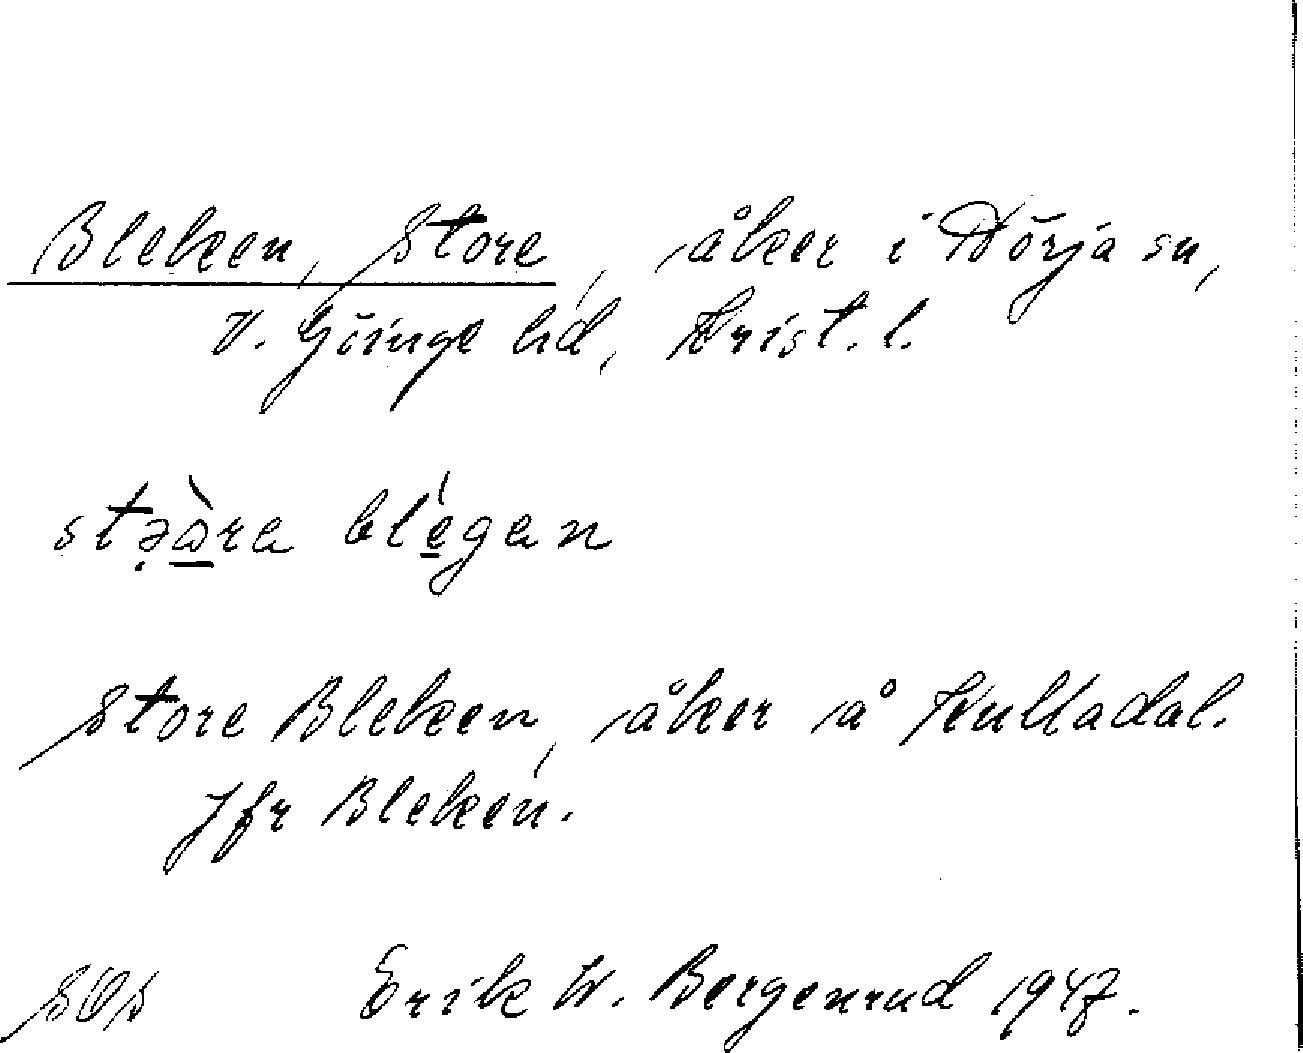 Bleken, Store, åker i Nörja sn,
V. Göinge hd, Krist. l.
stə̣àra blégan
Store Bleken, åker å Kulladal.
Jfr Bleken.
Erik W. Bergenrud 1947.